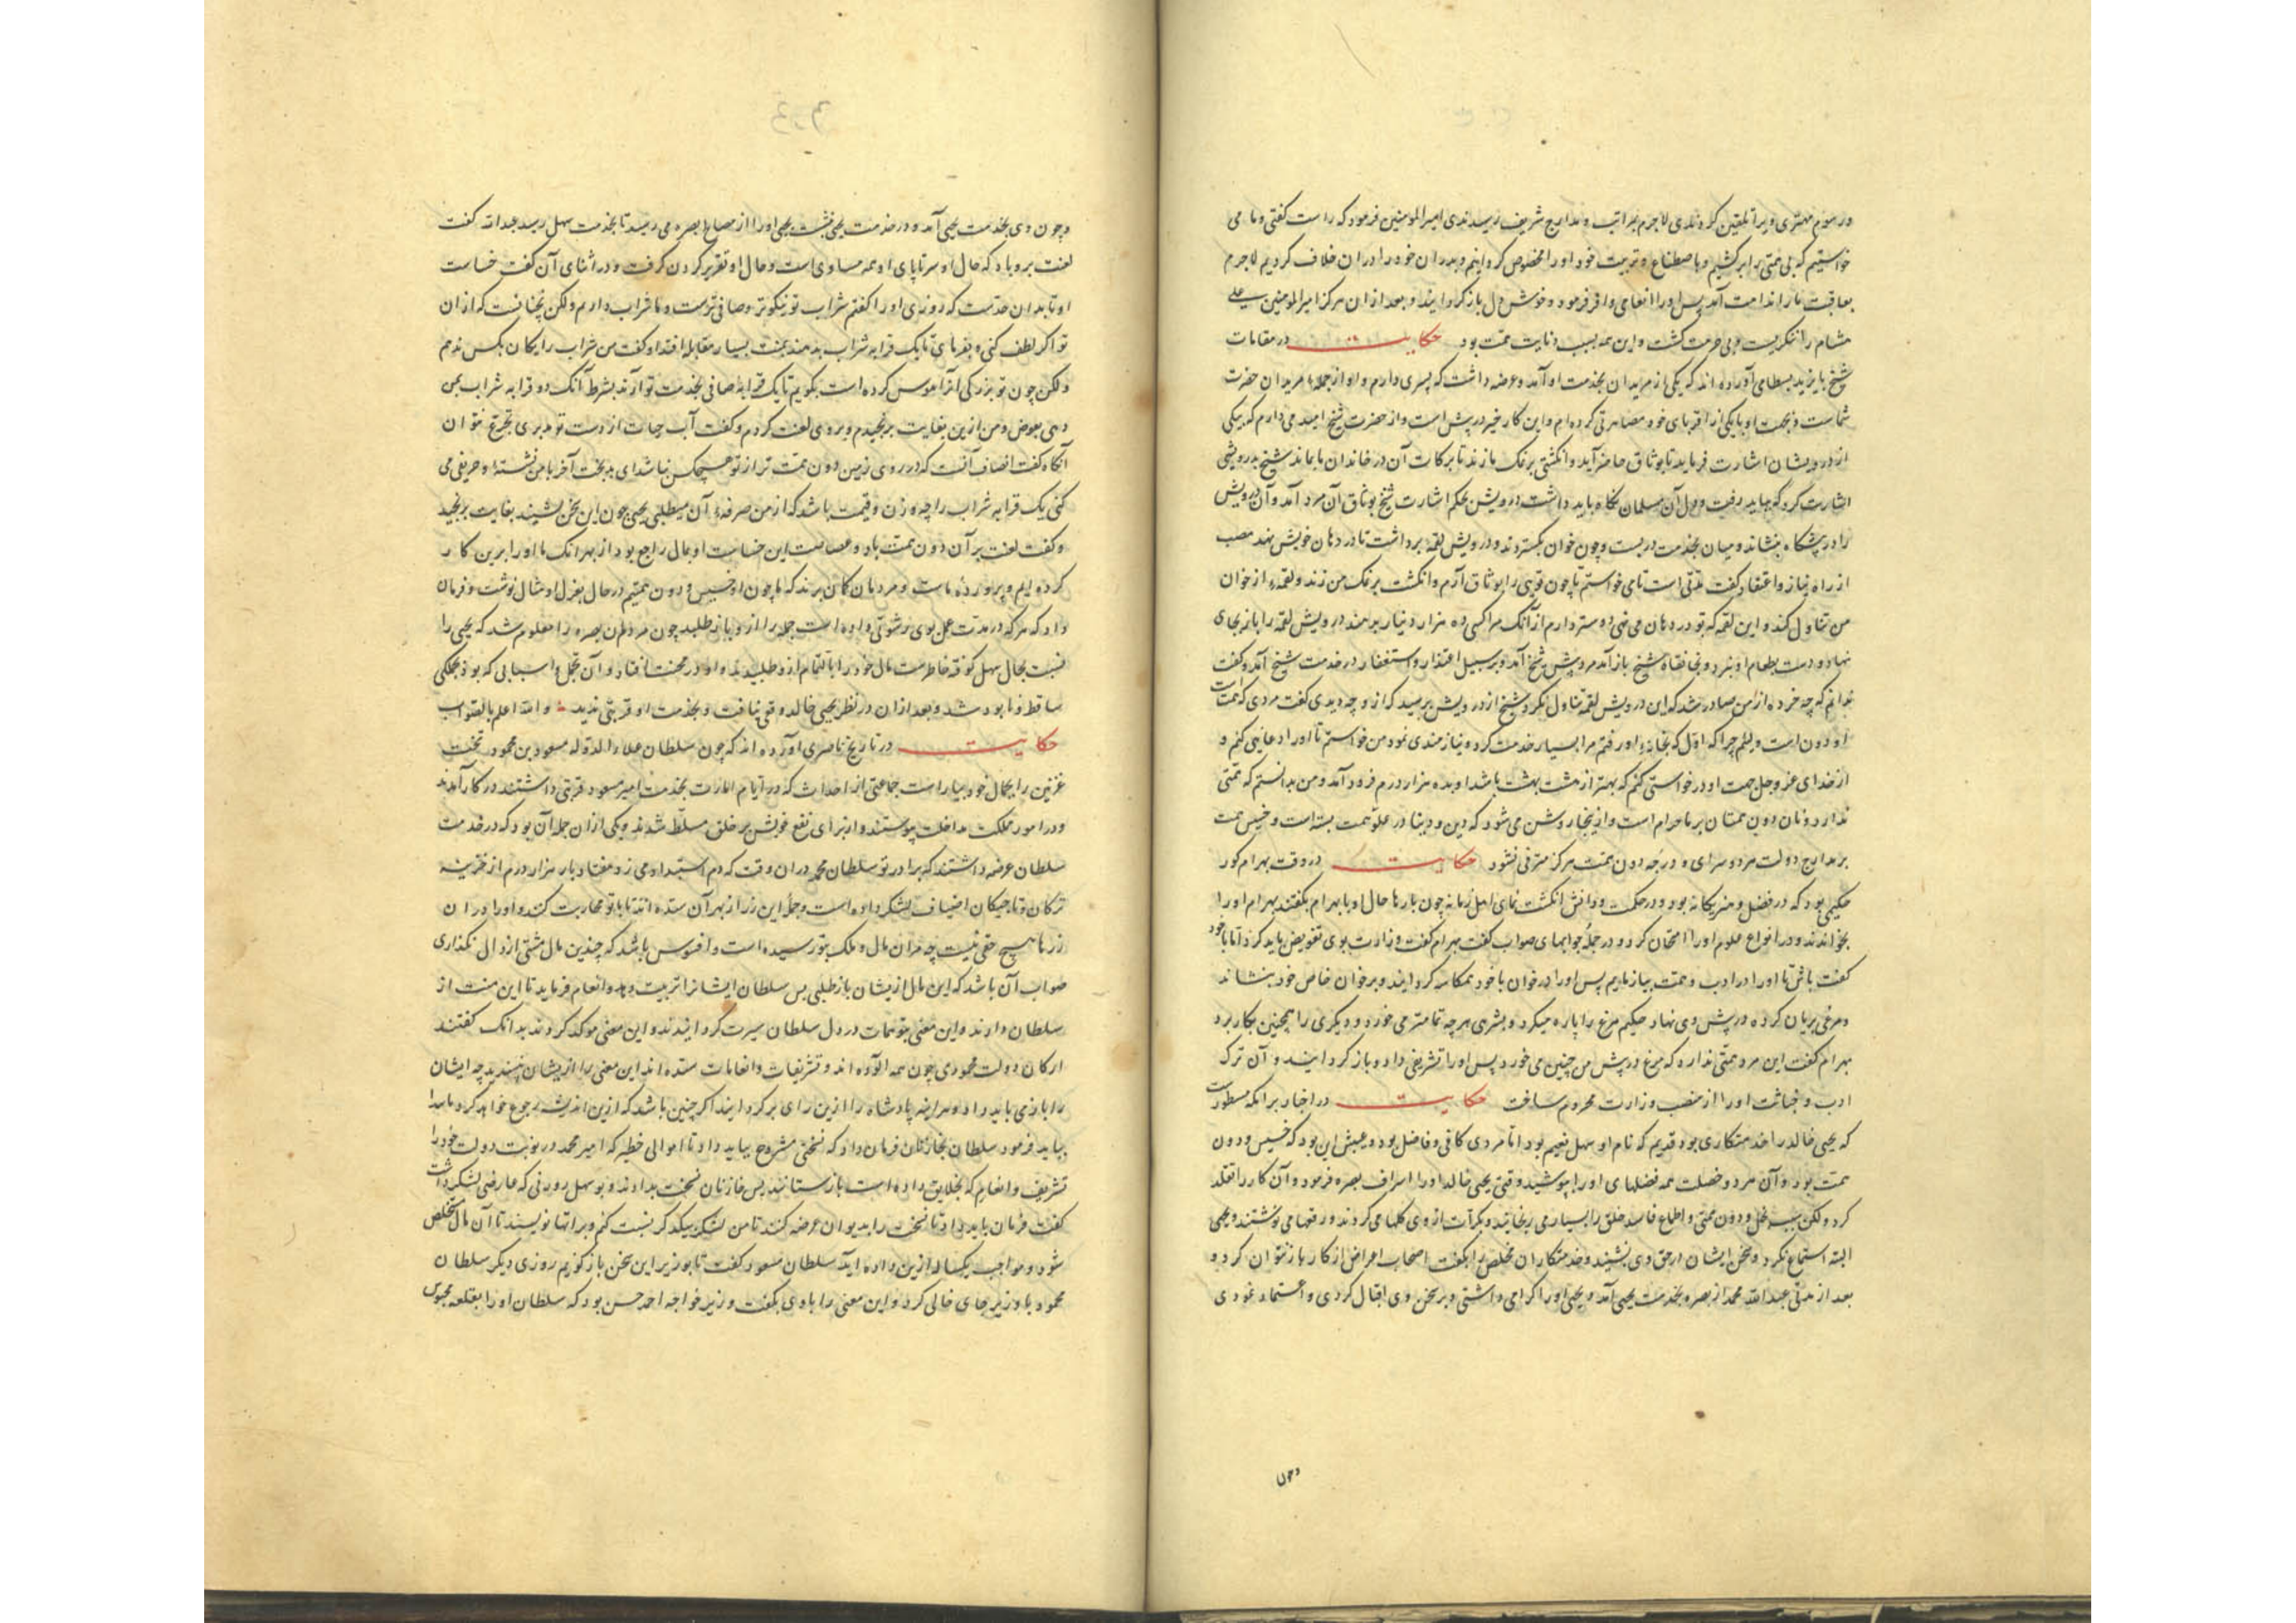 در سوم مهتری ویرا تلقین کردندی لاجرم بمراتب و مدارج شریف رسیدندی امیرالمومنین فرمود که راست گفتی و ما می
خواستیم که بی همتی را برکشیم و باصطناع و تربیت خود او را مخصوص کردانیم و پدران خود را در ان خلاف کردیم لاجرم
بعاقبت ما را ندامت آمد پس او را انعامی وافر فرمود و خوش دل بازکردانیدند و بعد از ان هرکز امیرالمومنین سوی علی
هشام را ننکریست و بی حرمت کشت و این همه بسبب دنایت همت بود حکایت در مقامات
شیخ بایزید بسطامی آورده اند که یکی از مریدان بخدمت او آمد و عرضه داشت که پسری دارم و او از جمله مریدان حضرت
شماست و بجهت او با یکی از اقربای خود مصاهرتی کرده ام و این کار خیر در پیش است و از حضرت شیخ امید می دارم که بیکی
از درویشان اشارت فرماید تا بوثاق حاضر آید و انکشتی بر نمک ما زند تا برکات آن در خاندان ما بماند شیخ بدرویشی
اشارت کرد که بباید رفت و دل آن مسلمان نکاه باید داشت درویش بحکم اشارت شیخ بوثاق آن مرد آمد و آن درویش
را در پیشکاه بنشاند و میان بخدمت در بست و چون خوان بکستردند و درویش لقمه برداشت تا در دهان خویش نهد مضیف
از راه نیاز و اعتقاد کفت مدتی است تا می خواستم تا چون تویی را بوثاق آرم و انکشت بر نمک من زند و لقمه از خوان
من تناول کند و این لقمه که تو در دهان می نهی دوستر دارم از آنک مرا کسی ده هزار دینار بدهد درویش لقمه را باز بجای
نهاد و دست بطعام او نبرد و بخانقاه شیخ باز آمد مرد پیش شیخ آمد و بر سبیل اعتذار و استغفار در خدمت شیخ آمد و کفت
ندانم که چه خرده از من صادر شد که این درویش لقمه تناول نکرد شیخ از درویش پرسید که از و چه دیدی کفت مردی که همت
او دون است و لئیم چرا که اول که بخانه او رفتم مرا بسیار خدمت کرد و نیازمندی نمود من خواستم تا او را دعایی کنم و
از خدای عز و جل جهت او درخواستی کنم که بهتر از هشت بهشت باشد او بده هزار درم فرود آمد و من بدانستم که همتی
ندارد و نان دون همتان بر ما حرام است و از ینجا روشن می شود که دین و دنیا در علو همت بسته است و خسیس همت
بر مدارج دولت مرد و سرای و درجه دون همت هرکز مترقی نشود حکایت در وقت بهرام کور
حکیمی بود که در فضل و هنر یکانه بود و در حکمت و دانش انکشت نمای اهل زمانه چون بارها حال او با بهرام بکفتند بهرام او را
بخواندند و در انواع علوم او را امتحان کرد و در جمله جوابهای صواب کفت بهرام کفت وزارت بوی تفویض باید کرد اما با خود
کفت باش تا او را در ادب و همت بیازماییم پس او را در خوان با خود همکاسه کردانید و بر خوان خاص خود بنشاند
و مرغی بریان کرده در پیش وی نهاد حکیم مرغ را پاره میکرد و بشرهی هر چه تمامتر می خورد و دیکری را همچنین بکار برد
بهرام کفت این مرد همتی ندارد که مرغ در پیش من چنین می خورد پس او را تشریفی داد و باز کردانید و آن ترک
ادب و خباثت او را از منصب وزارت محروم ساخت حکایت در اخبار برامکه مسطورست
که یحیی خالد را خدمتکاری بود قدیم که نام او سهل نعیم بود اما مردی کافی و فاضل بود و عیبش این بود که خسیس و دون
همت بود و آن مرد و خصلت همه فضلهای او را بپوشید وقتی یحیی خالد او را اشراف بصره فرمود و آن کار را تقلد
کرد ولکن بسبب بخل و دون همتی و اطماع فاسد خلق را بسیار می رنجانید و بکرات از وی کلها می کردند و رقعها می نوشتند و یحیی
البته استماع نکرد و سخن ایشان در حق وی نشنید و خدمتکاران مخلص را بکفت اصحاب اعراض از کار باز نتوان کرد و
بعد از مدتی عبدالله محمد از بصره بخدمت یحیی آمد و یحیی او را کرامی داشتی و بر سخن وی اقبال کردی و اعتماد نمودی
وچون
و چون وی بخدمت یحیی آمد و در خدمت یحیی بنشست یحیی او را از مصالح بصره می پرسید تا بخدمت سهل رسید عبدالله کفت
لعنت بر وی باد که حال او سرتا پای او همه مساوی است و حال او تقریر کردن کرفت و در اثنای آن کفت خساست
او تا بدان حدست که روزی او را کفتم شراب تو نیکوتر و صافی ترست و ما شراب داریم ولکن نچنانست که از ان
تو اکر لطف کنی و بفرمای تا یک قرابه شراب بدهند بمنت بسیار مقابله افتد او کفت من شراب رایکان بکس ندهم
ولکن چون تو بزرکی انرا هوس کرده است بکویم تا یک قرابه صافی بخدمت تو آرند بشرط آنک دو قرابه شراب بمن
دهی بعوض و من ازین بغایت برنجیدم و بروی لعنت کردم و کفت آب حیات از دست تو مدبری تجرع نتوان
آنکاه کفت انصاف آنست که در روی زمین دون همت تر از تو هیچکس نباشد ای بدبخت آخر با من نشسته و حریفی می
کنی یک قرابه شراب را چه وزن و قیمت باشد که از من صرفه آن میطلبی یحیی چون این سخن بشنید بغایت برنجید
و کفت لعنت بر آن دون همت باد و عصامت این خساست او بمال راجع بود از بهر انک ما او را برین کار
کرده ایم و پرورده ماست و مردمان کمان برند که ما چون او خسیس و دون همتیم در حال بعزل او مثال نوشت و فرمان
داد که هر که در مدت عمل بوی رشوتی داده است جمله را از و باز طلبد چون مردمان بصره را معلوم شد که یحیی را
نسبت بحال سهل کوفته خاطرست مال خود را با تمام از و طلبیدند و او در محنت افتاد و آن تجمل و اسبابی که بود بجملکی
ساقط و نابود شد و بعد از ان در نظر یحیی خالد وقعی نیافت و بخدمت او قربتی ندید و الله اعلم بالصواب
حکایت در تاریخ ناصری آورده اند که چون سلطان علاء الدوله مسعود بن محمود تخت
غزنین را بجمال خود بیاراست جماعتی از احداث که در ایام امارت بخدمت امیر مسعود قربتی داشتند در کار آمدند
و در امور مملکت مداخلت پیوستند و از برای نفع خویش بر خلق مسلط شدند و یکی از ان جمله آن بود که در خدمت
سلطان عرضه داشتند که برادر تو سلطان محمد در ان وقت که دم استبداد می زد هفتاد بار هزار درم از خزینه
ترکان و تاجیکان اضیاف لشکر داده است و جمله این زر از بهر آن ستده اند تا با تو محاربت کنند و او را در ان
زرها هیچ حقی نیست چه مر ان مال و ملک بتو رسیده است و افسوس باشد که چندین مال مشتی ارذال بکذاری
صواب آن باشد که این مال از یشان باز طلبی پس سلطان ایشانرا تربیت دهد و انعام فرماید تا این منت از
سلطان دارند و این معنی بتوهمات در دل سلطان سیرت کردانیدند و این معنی موکد کردند بدانک کفتند
ارکان دولت محمودی چون همه آلوده اند و تشریفات و انعامات ستده اند این معنی را از یشان نپسندید چه ایشان
را باز می باید داد و هراینه پادشاه را ازین رای برکردانند اکر چنین باشد که ازین اندیشه رجوع خواهد کرد ما را
بباید فرمود سلطان بخازنان فرمان داد که نسختی مشروح بباید داد تا اموالی خطیر که امیر محمد در نوبت دولت خود را
تشریف و انعام که بخلایق داده است باز ستانند پس خازنان نسخت بدادند و بوسهل زوزنی که عارض لشکر داشت
کفت فرمان باید داد تا نسخت را بدیوان عرضه کنند تا من لشکر بیکدکر نسبت کنم و براتها نویسند تا آن مال مستخلص
شود و مواجب یکساله ازین داده اید سلطان مسعود کفت تا بوزیر این سخن باز کویم روزی دیکر سلطان
محمود با وزیر جای خالی کرد و این معنی را با وی بکفت و وزیر خواجه احمد حسن بود که سلطان او را بقلعه محبوس